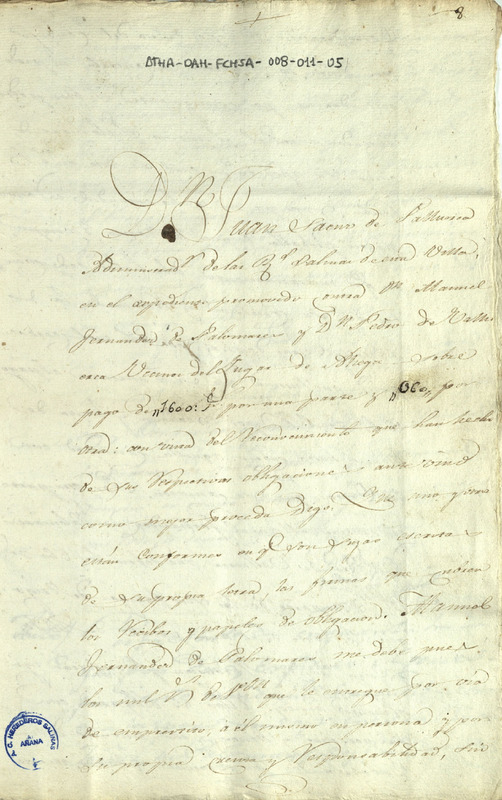 8
DTHA-DAH-FCHSA-008-011-05
Dn Juan Saenz de
Administradr de las Rs Salinas de esta Villa,
en el expediente promovido contra Dn Manuel
Fernandez de Palomares y Dn Pedro de
Vecinos del Lugar de sobre
pago de 1600 rs por una parte y 360 por
otra: en vista del Reconocimiento que han hecho
de sus Respectivas obligaciones ante vmd
como mejor proceda Digo: Que uno y otro
están conformes en qe son suyas escritas
de su propia letra, las firmas que
los Recibos y papeles de obligacion. Manuel
Fernandez de Palomares me debe pues
los mil rs de von que le entregué por via
de emprestito, a él mismo en persona y por
su propia cuenta y Responsabilidad, sin
C. HEREDEROS SALINAS
AÑANA